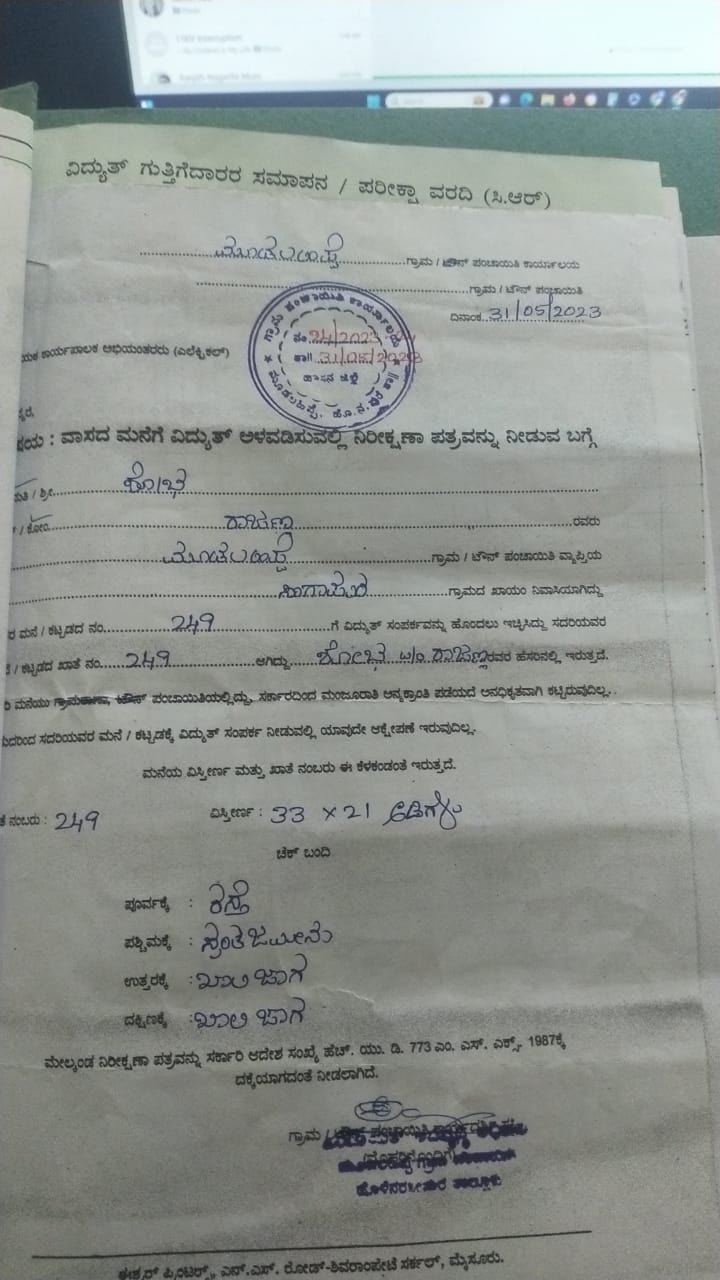 Search
ವಿದ್ಯುತ್ ಗುತ್ತಿಗೆದಾರರ ಸಮಾಪನ / ಪರೀಕ್ಷಾ ವರದಿ (ಸಿ.ಆರ್)
ಗ್ರಾಮ / ಟೌನ್ ಪಂಚಾಯಿತಿ ಕಾರ್ಯಾಲಯ
ಗ್ರಾಮ / ಟೌನ್ ಪಂಚಾಯಿತಿ
ದಿನಾಂಕ 31/05/2023
ಗ್ರಾಮ ಪಂಚಾಯಿತಿ ಕಾರ್ಯಾಲಯ
ನಂ 24/2023
ತಾ|| 31/05/2023
ಹಾಸನ ಜಿಲ್ಲೆ
ಕಾರ್ಯಪಾಲಕ ಅಭಿಯಂತರರು (ಎಲೆಕ್ಟ್ರಿಕಲ್)
: ವಾಸದ ಮನೆಗೆ ವಿದ್ಯುತ್ ಅಳವಡಿಸುವಲ್ಲಿ ನಿರೀಕ್ಷಣಾ ಪತ್ರವನ್ನು ನೀಡುವ ಬಗ್ಗೆ
/ ಶ್ರೀ ಶೋಭ
/ ಕೋಂ ರಾಜಣ್ಣ ರವರು
ಗ್ರಾಮ / ಟೌನ್ ಪಂಚಾಯಿತಿ ವ್ಯಾಪ್ತಿಯ
ಗ್ರಾಮದ ಖಾಯಂ ನಿವಾಸಿಯಾಗಿದ್ದು
ಮನೆ / ಕಟ್ಟಡದ ನಂ. 249 ಗೆ ವಿದ್ಯುತ್ ಸಂಪರ್ಕವನ್ನು ಹೊಂದಲು ಇಚ್ಛಿಸಿದ್ದು ಸದರಿಯವರ
/ ಕಟ್ಟಡದ ಖಾತೆ ನಂ. 249 ಆಗಿದ್ದು ಶೋಭ w/o ರಾಜಣ್ಣ ರವರ ಹೆಸರಿನಲ್ಲಿ ಇರುತ್ತದೆ.
ಮನೆಯು ಗ್ರಾಮಠಾಣಾ, ಟೌನ್ ಪಂಚಾಯಿತಿಯಲ್ಲಿದ್ದು, ಸರ್ಕಾರದಿಂದ ಮಂಜೂರಾತಿ ಅನ್ಯಕ್ರಾಂತಿ ಪಡೆಯದೆ ಅನಧಿಕೃತವಾಗಿ ಕಟ್ಟಿರುವುದಿಲ್ಲ.
ಸದರಿಯವರ ಮನೆ / ಕಟ್ಟಡಕ್ಕೆ ವಿದ್ಯುತ್ ಸಂಪರ್ಕ ನೀಡುವಲ್ಲಿ ಯಾವುದೇ ಆಕ್ಷೇಪಣೆ ಇರುವುದಿಲ್ಲ.
ಮನೆಯ ವಿಸ್ತೀರ್ಣ ಮತ್ತು ಖಾತೆ ನಂಬರು ಈ ಕೆಳಕಂಡಂತೆ ಇರುತ್ತದೆ.
ನಂಬರು : 249 ವಿಸ್ತೀರ್ಣ : 33 × 21 ಅಡಿಗಳು
ಚೆಕ್ ಬಂದಿ
ಪೂರ್ವಕ್ಕೆ : ರಸ್ತೆ
ಪಶ್ಚಿಮಕ್ಕೆ : ಸ್ವಂತ ಜಮೀನು
ಉತ್ತರಕ್ಕೆ : ಖಾಲಿ ಜಾಗ
ದಕ್ಷಿಣಕ್ಕೆ : ಖಾಲಿ ಜಾಗ
ಮೇಲ್ಕಂಡ ನಿರೀಕ್ಷಣಾ ಪತ್ರವನ್ನು ಸರ್ಕಾರಿ ಆದೇಶ ಸಂಖ್ಯೆ ಹೆಚ್. ಯು. ಡಿ. 773 ಎಂ. ಎಸ್. ಎಕ್ಸ್. 1987ಕ್ಕೆ
ದಕ್ಕೆಯಾಗದಂತೆ ನೀಡಲಾಗಿದೆ.
ಗ್ರಾಮ / ಟೌನ್ ಪಂಚಾಯಿತಿ
(ಮೊಹರಿನೊಂದಿಗೆ)
ಹೊಳೆನರಸೀಪುರ ತಾಲ್ಲೂಕು
ಈಶ್ವರ್ ಪ್ರಿಂಟರ್ಸ್, ಎನ್.ಎಸ್. ರೋಡ್-ಶಿವರಾಂಪೇಟೆ ಸರ್ಕಲ್, ಮೈಸೂರು.